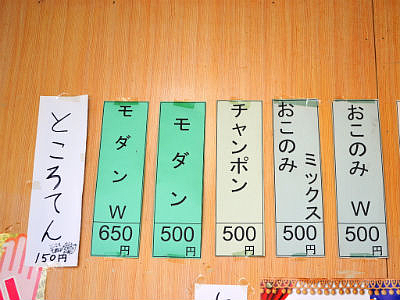 ところてん
150円
モダン W
650円
モダン
500円
チャンポン
500円
おこのみ
ミックス
500円
おこのみ W
500円